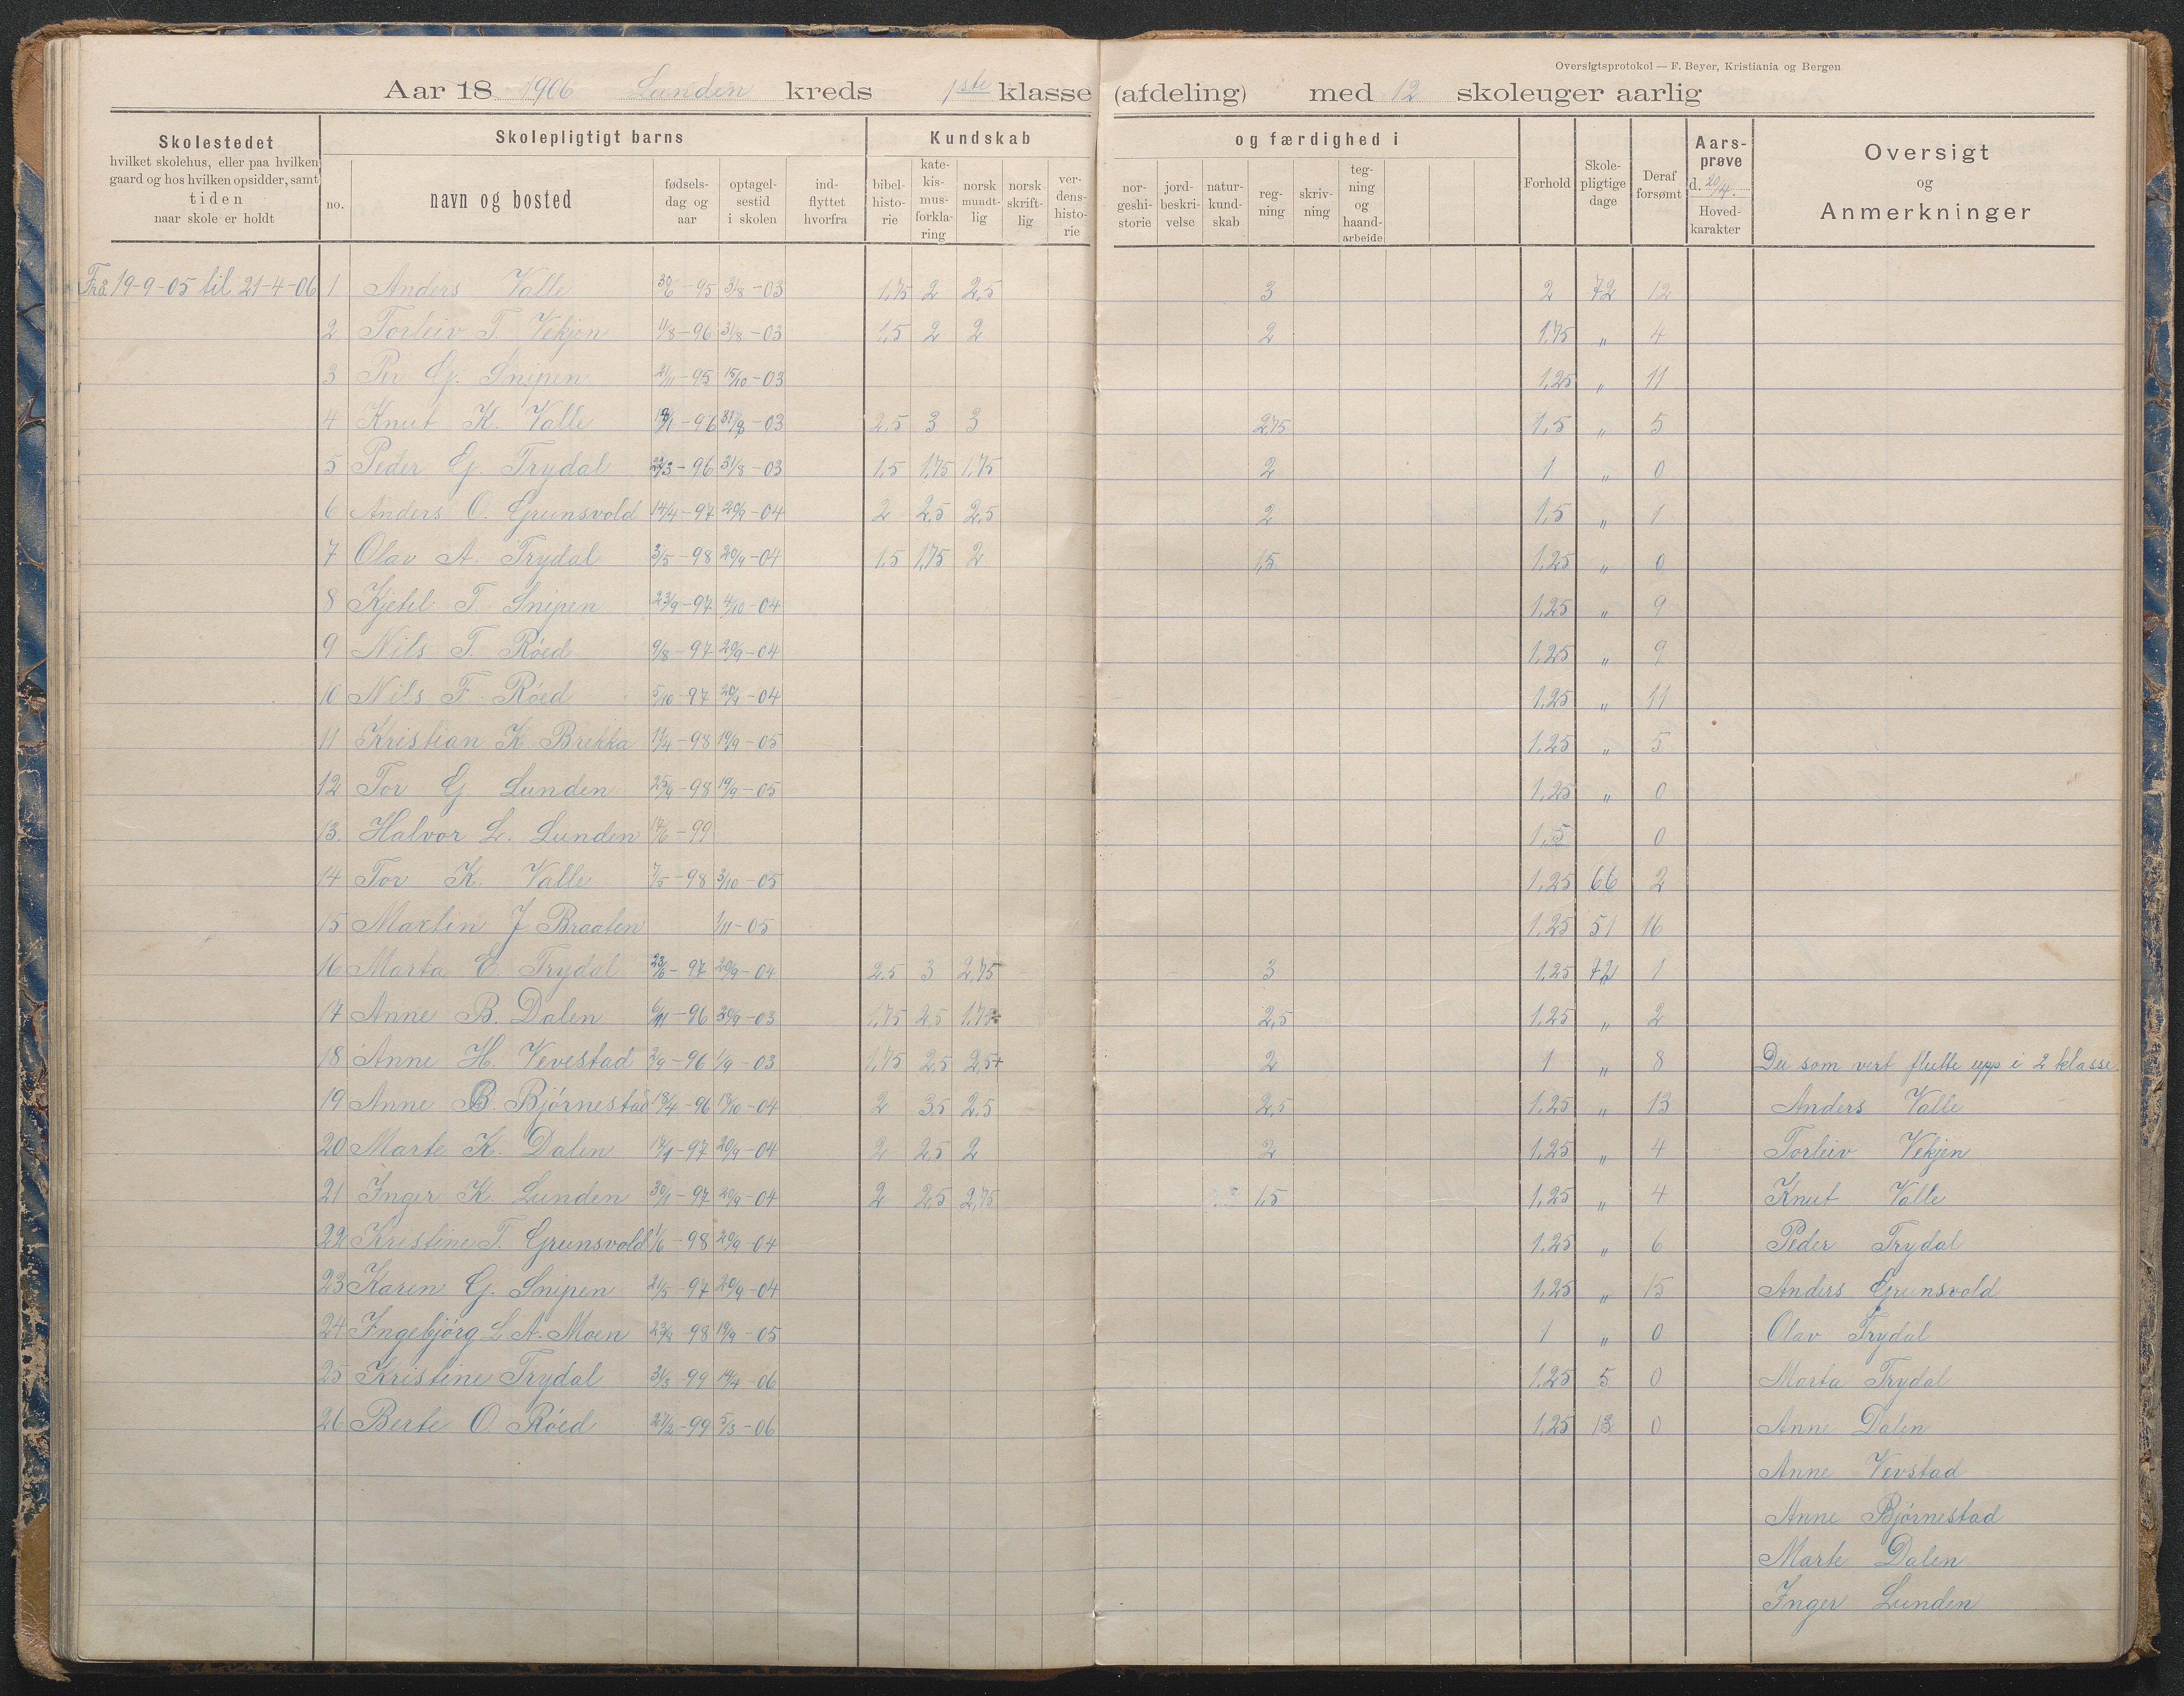 Oversigtsprotokol — F. Beyer, Kristiania og Bergen
Aar 18 1906 Lunden kreds 1ste klasse (afdeling) med 12 skoleuger aarlig
Skolestedet hvilket skolehus, eller paa hvilken gaard og hos hvilken opsidder, samt tiden naar skole er holdt
Skolepligtigt barns
no. navn og bosted fødsels-dag og aar optagel-sestid i skolen ind-flyttet hvorfra
Kundskab og færdighed i
bibel-histo-rie kate-kis-mus-forkla-ring norsk mundt-lig norsk skrift-lig ver-dens-histo-rie nor-geshi-storie jord-beskri-velse natur-kund-skab reg-ning skriv-ning teg-ning og haand-arbeide
Forhold Skole-pligtige dage Deraf forsømt Aars-prøve d. 20/4. Hoved-karakter
Oversigt og Anmerkninger
Frå 19-9-05 til 21-4-06 1 Anders Valle 30/6-95 31/8-03 1,75 2 2,5 3 2 72 12
2 Torleiv T. Vekjen 11/8-96 31/8-03 1,5 2 2 2 1,75 " 4
3 Per G. Snipen 21/11-95 15/10-03 1,25 " 11
4 Knut K. Valle -96 31/8-03 2,5 3 3 2,75 1,5 " 5
5 Peder G. Trydal -96 31/8-03 1,5 1,75 1,75 2 1 " 0
6 Anders O. Grunsvold 14/4-97 20/9-04 2 2,5 2,5 2 1,5 " 1
7 Olav A. Trydal 3/5-98 20/9-04 1,5 1,75 2 1,5 1,25 " 0
8 Kjetil T. Snipen 23/9-97 4/10-04 1,25 " 9
9 Nils T. Røed 9/8-97 20/9-04 1,25 " 9
10 Nils F. Røed 5/10-97 20/9-04 1,25 " 11
11 Kristian K. Brekka -98 19/9-05 1,25 " 5
12 Tor G. Lunden 25/9-98 19/9-05 1,25 " 0
13. Halvor L. Lunden -99 1,5 0
14 Tor K. Valle 7/5-98 3/10-05 1,25 66 2
15 Martin J Braaten 1/11-05 1,25 51 16
16 Marta O. Trydal 23/6-97 20/9-04 2,5 3 2,75 3 1,25 72 1
17 Anne B. Dalen -96 -03 1,75 2,5 1,75 2,5 1,25 " 2
18 Anne H. Vevestad 2/9-96 1/9-03 1,75 2,5 2,5+ 2 1 " 8 Dei som vert flutte upp i 2 klasse
19 Anne B. Bjørnestad 18/4-96 18/10-04 2 3,5 2,5 2,5 1,25 " 13 Anders Valle
20 Marte K. Dalen -97 20/9-04 2 2,5 2 2 1,25 " 4 Torleiv Vekjen
21 Inger K. Lunden 30/1-97 20/9-04 2 2,5 2,75 1,5 1,25 " 4 Knut Valle
22 Kristine T. Grunsvold 1/6-98 20/9-04 1,25 " 6 Peder Trydal
23 Karen G. Snipen 21/5-97 20/9-04 1,25 " 15 Anders Grunsvold
24 Ingebjørg L. A. Moen 23/8-98 19/9-05 1 " 0 Olav Trydal
25 Kristine Trydal 31/3-99 -06 1,25 5 0 Marta Trydal
26 Berte O Røed 27/2-99 5/3-06 1,25 13 0 Anne Dalen
Anne Vevstad
Anne Bjørnestad
Marte Dalen
Inger Lunden